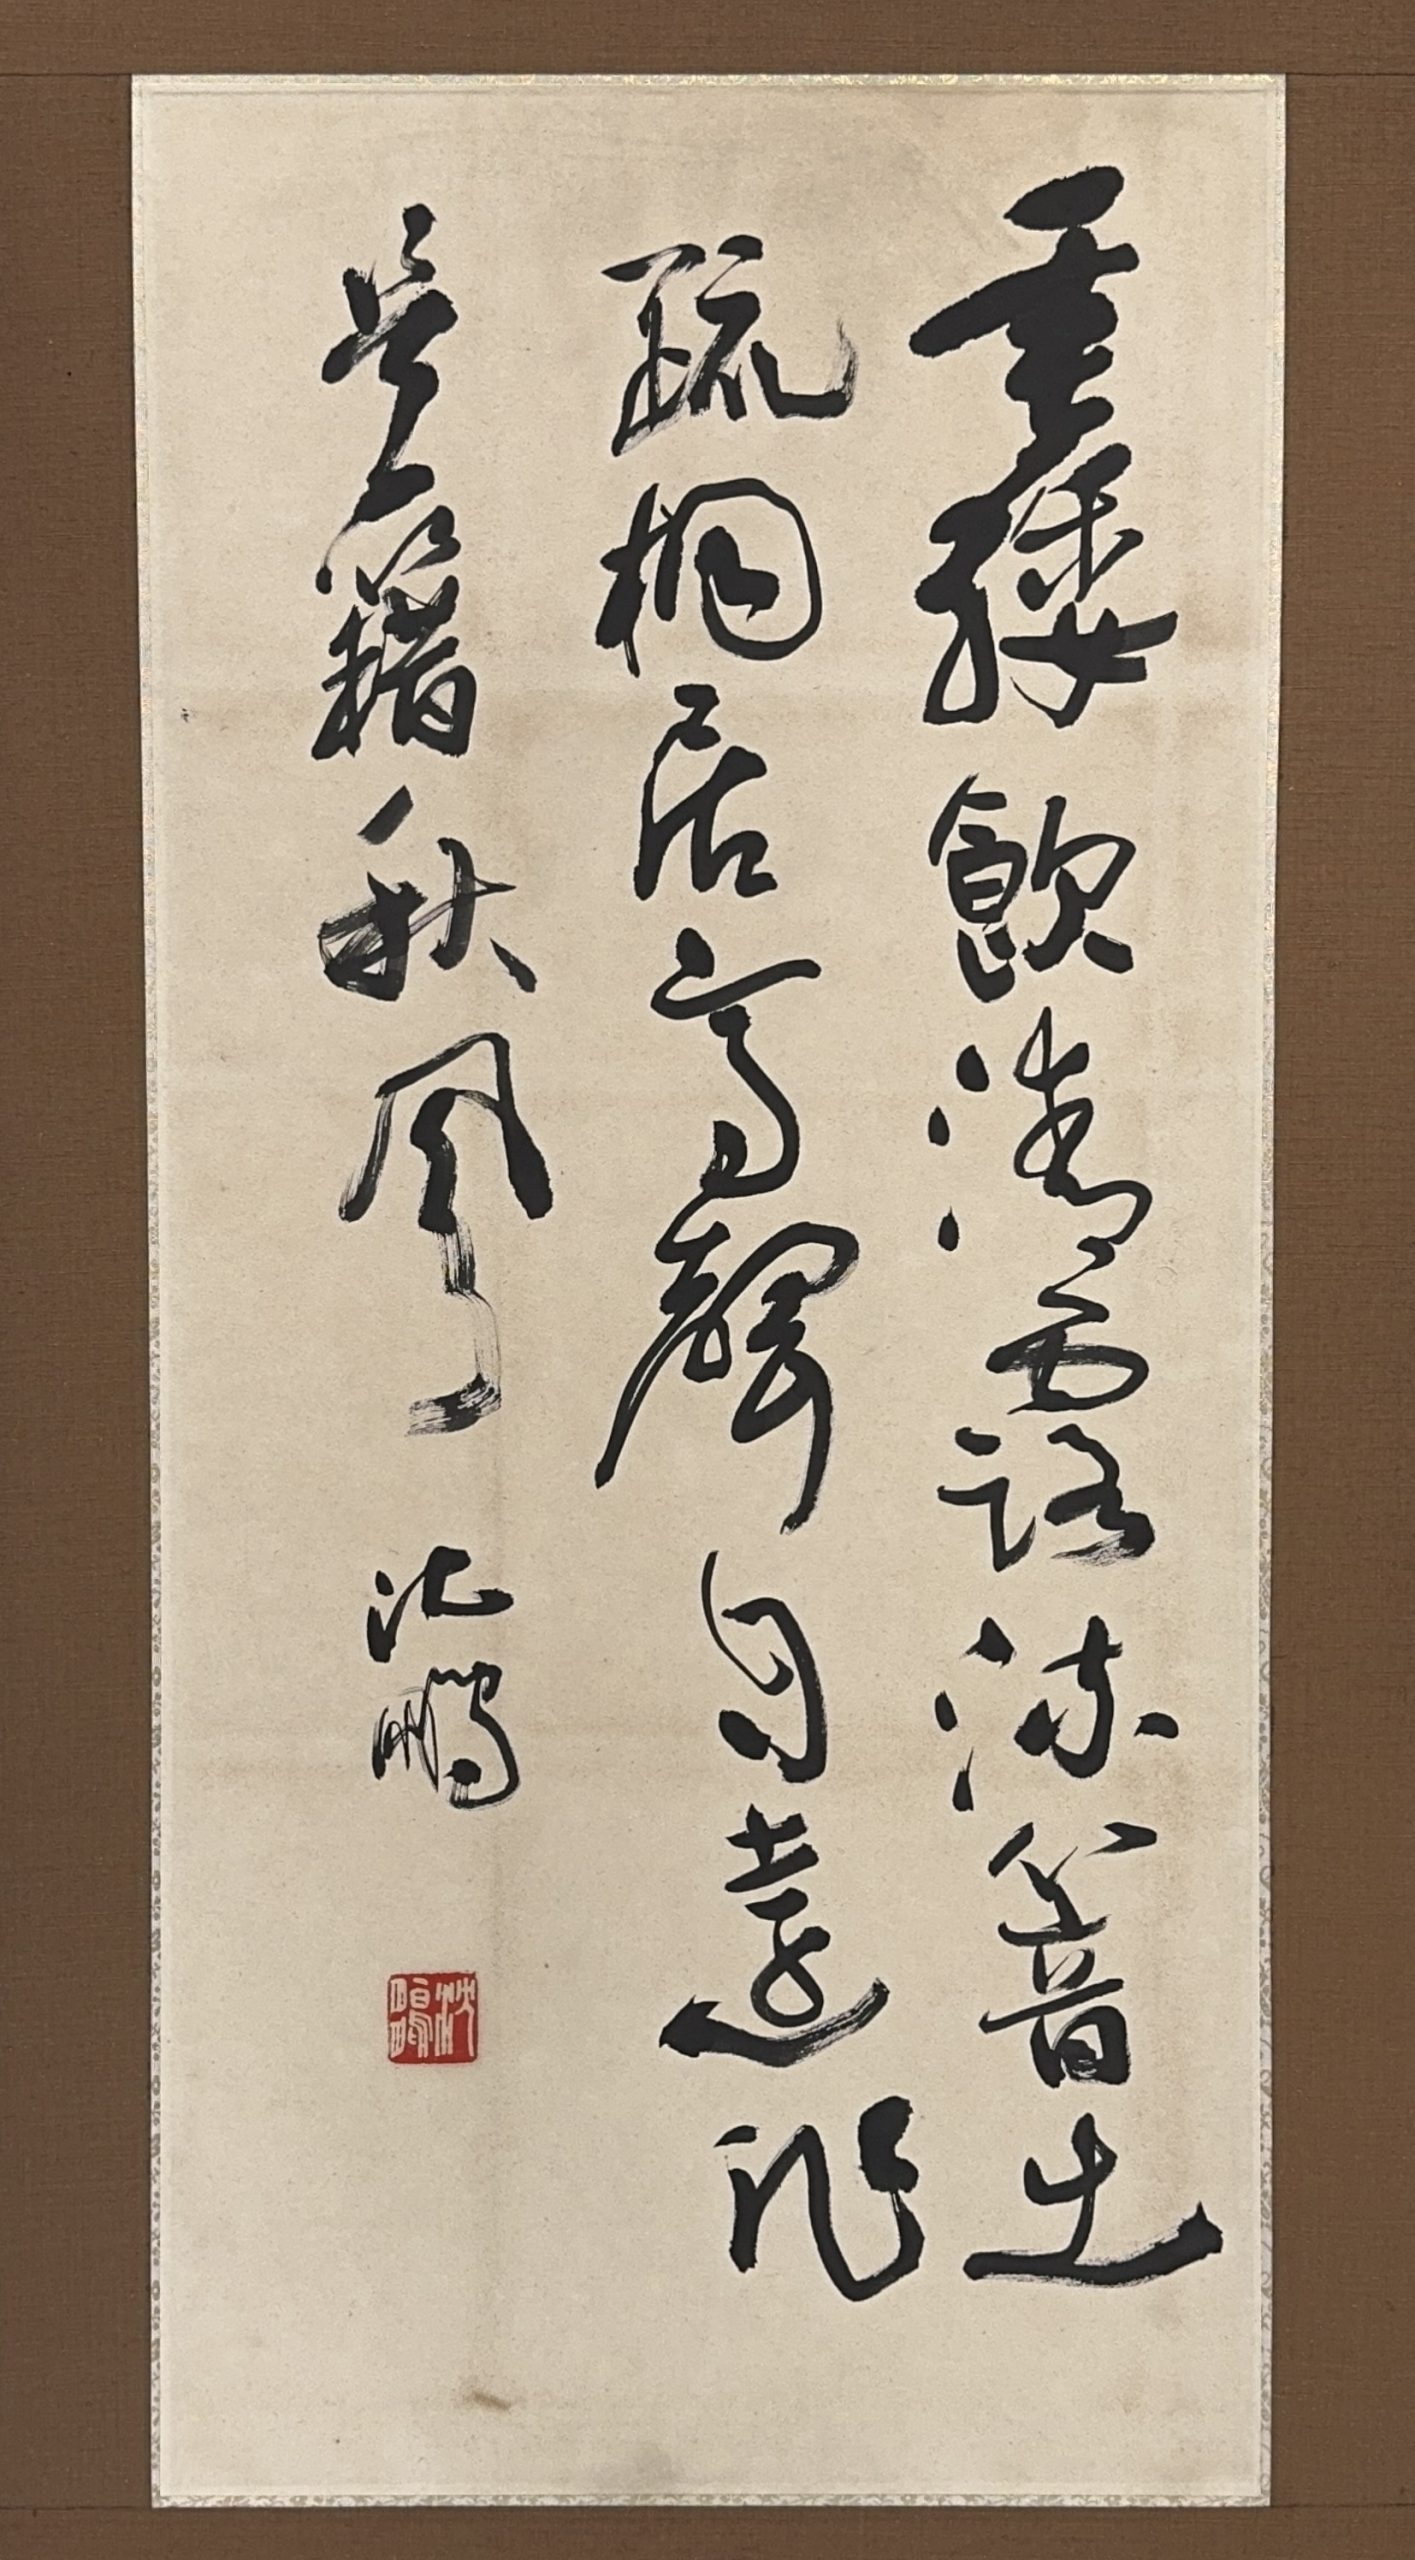 垂緌飲清露流響出
疏桐居高聲自遠非
是籍秋風 沈鵬
沈鵬